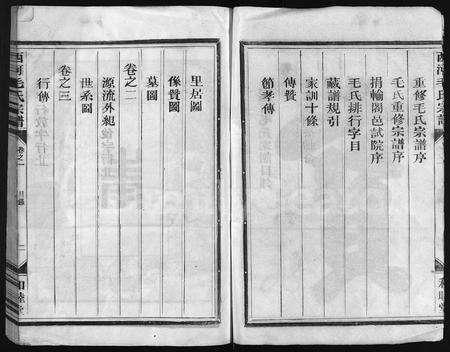 西河毛氏宗譜
重修毛氏宗譜序
毛氏重修宗譜序
捐輸闔邑試院序
毛氏排行字目
藏譜規引
家訓十條
傳贊
節孝傳
里居圖
像贊圖
墓圖
卷之二
源流外紀
世系圖
卷之三
行傳
西河毛氏宗譜
卷之一
目錄
二
睦堂